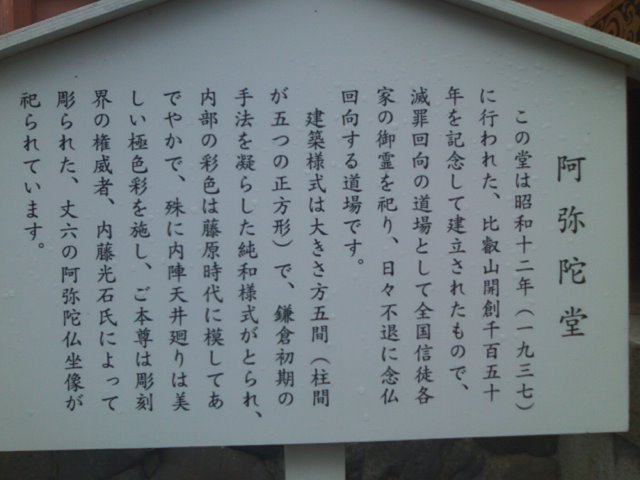 阿弥陀堂
この堂は昭和十二年（一九三七）
に行われた、比叡山開創千百五十
年を記念して建立されたもので、
滅罪回向の道場として全国信徒各
家の御霊を祀り、日々不退に念仏
回向する道場です。
建築様式は大きさ方五間（柱間
が五つの正方形）で、鎌倉初期の
手法を凝らした純和様式がとられ、
内部の彩色は藤原時代に模してあ
でやかで、殊に内陣天井廻りは美
しい極色彩を施し、ご本尊は彫刻
界の権威者、内藤光石氏によって
彫られた、丈六の阿弥陀仏坐像が
祀られています。